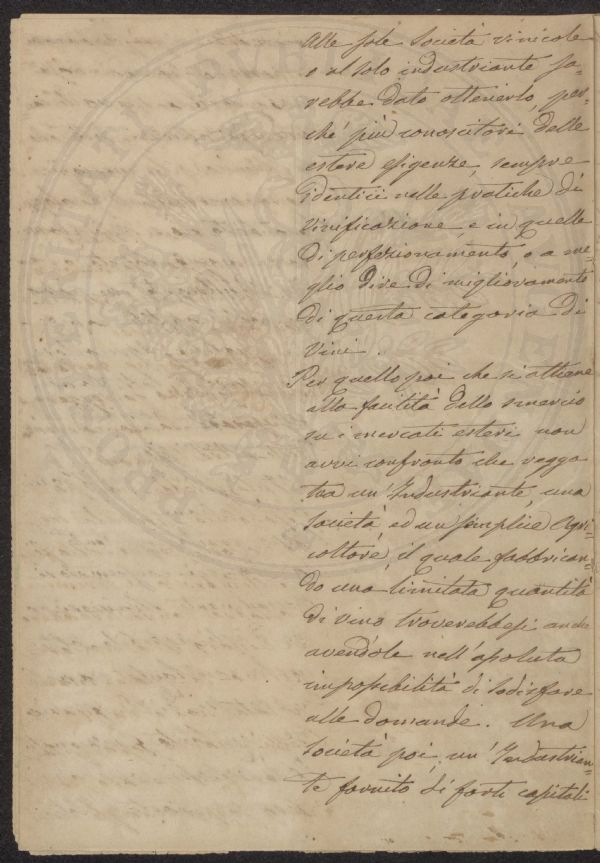 Alle sole Società vinicole
o al solo industriante sa-
rebbe dato ottenerlo, per-
ché più conoscitori delle
estere esigenze, sempre
identici nelle pratiche di
vinificazione, e in quelle
di perfezionamento, o a me-
glio dire di miglioramento
di questa categoria di
vini.
Per quello poi che si attiene
alla facilità dello smercio
su i mercati esteri non
avvi confronto che regga
tra un Industriante, una
Società ed un semplice Agri-
coltore, il quale fabbrican-
do una limitata quantità
di vino troverebbesi anche
avendole nell'assoluta
impossibilità di sodisfare
alle domande. Una
Società poi, un'Industrian-
te fornito di forti capitali